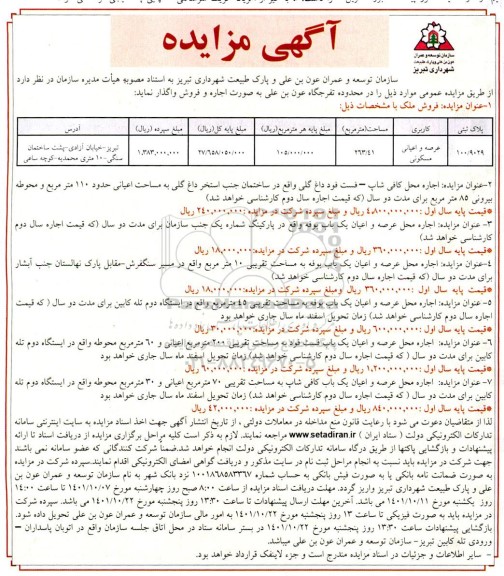 آگهی مزایده
سازمان توسعه و عمران
عون بن علی و پارک طبیعت
شهرداری تبریز
سازمان توسعه و عمران عون بن علی و پارک طبیعت شهرداری تبریز به استناد مصوبه هیأت مدیره سازمان در نظر دارد
از طریق مزایده عمومی موارد ذیل را در محدوده تفرجگاه عون بن علی به صورت اجاره و فروش واگذار نماید:
۱-عنوان مزایده: فروش ملک با مشخصات ذیل:
پلاک ثبتی کاربری مساحت(مترمربع) مبلغ پایه هر مترمربع(ریال) مبلغ پایه کل(ریال) مبلغ سپرده (ریال) آدرس
۱۰۰/۹۰۲۹ عرصه و اعیانی مسکونی ۲۶۳/۴۱ ۱۰۵/۰۰۰/۰۰۰ ۲۷/۶۵۸/۰۵۰/۰۰۰ ۱,۳۸۳,۰۰۰,۰۰۰ تبریز-خیابان آزادی-پشت ساختمان سنگی-۱۰ متری محمدیه-کوچه ساعی
۲-عنوان مزایده: اجاره محل کافی شاپ – فست فود داغ گلی واقع در ساختمان جنب استخر داغ گلی به مساحت اعیانی حدود ۱۱۰ متر مربع و محوطه
بیرونی ۸۵ متر مربع برای مدت دو سال (که قیمت اجاره سال دوم کارشناسی خواهد شد)
*قیمت پایه سال اول :۴,۸۰۰,۰۰۰,۰۰۰ ریال و مبلغ سپرده شرکت در مزایده: ۲۴۰,۰۰۰,۰۰۰ ریال
۳-عنوان مزایده: اجاره محل عرصه و اعیان یک باب بوفه واقع در پارکینگ شماره یک جنب سازمان برای مدت دو سال (که قیمت اجاره سال دوم
کارشناسی خواهد شد)
*قیمت پایه سال اول :۳۶۰,۰۰۰,۰۰۰ ریال و مبلغ سپرده شرکت در مزایده: ۱۸,۰۰۰,۰۰۰ ریال
۴-عنوان مزایده: اجاره محل عرصه و اعیان یک باب بوفه به مساحت تقریبی ۱۰ متر مربع واقع در مسیر سنگفرش-مقابل پارک نهالستان جنب آبشار
برای مدت دو سال (که قیمت اجاره سال دوم کارشناسی خواهد شد)
*قیمت پایه سال اول : ۳۶۰,۰۰۰,۰۰۰ ریال و مبلغ سپرده شرکت در مزایده:۱۸,۰۰۰,۰۰۰ ریال
۵-عنوان مزایده: اجاره محل عرصه و اعیان یک باب بوفه به مساحت تقریبی ۴۵ مترمربع واقع در ایستگاه دوم تله کابین برای مدت دو سال ( که قیمت
اجاره سال دوم کارشناسی خواهد شد) زمان تحویل اسفند ماه سال جاری خواهد بود
*قیمت پایه سال اول :۶۰۰,۰۰۰,۰۰۰ ریال و مبلغ سپرده شرکت در مزایده:۳۰,۰۰۰,۰۰۰ ریال
۶-عنوان مزایده: اجاره محل عرصه و اعیان یک باب فست فود به مساحت تقریبی ۲۰۰ مترمربع اعیانی و ۶۰ مترمربع محوطه واقع در ایستگاه دوم تله
کابین برای مدت دو سال ( که قیمت اجاره سال دوم کارشناسی خواهد شد) زمان تحویل اسفند ماه سال جاری خواهد بود
*قیمت پایه سال اول :۱,۲۰۰,۰۰۰,۰۰۰ ریال و مبلغ سپرده شرکت در مزایده: ۶۰,۰۰۰,۰۰۰ ریال
۷-عنوان مزایده: اجاره محل عرصه و اعیان یک باب کافی شاپ به مساحت تقریبی ۷۰ مترمربع اعیانی و ۳۰ مترمربع محوطه واقع در ایستگاه دوم تله
کابین برای مدت دو سال (که قیمت اجاره سال دوم کارشناسی خواهد شد) زمان تحویل اسفند ماه سال جاری خواهد بود
*قیمت پایه سال اول :۸۴۰,۰۰۰,۰۰۰ ریال و مبلغ سپرده شرکت در مزایده :۴۲,۰۰۰,۰۰۰ ریال
لذا از متقاضیان دعوت می شود با رعایت قانون منع مداخله در معاملات دولتی ، از تاریخ انتشار آگهی جهت اخذ اسناد مزایده به سایت اینترنتی سامانه
تدارکات الکترونیکی دولت ( ستاد ایران ) www.setadiran.ir مراجعه نمایند. لازم به ذکر است کلیه مراحل برگزاری مزایده از دریافت اسناد تا ارائه
پیشنهادات و بازگشایی پاکتها از طریق درگاه سامانه تدارکات الکترونیکی دولت انجام خواهد شد.ضمنا شرکت کنندگانی که عضو سامانه نمی باشند
جهت شرکت در مزایده باید نسبت به انجام مراحل ثبت نام در سایت مذکور و دریافت گواهی امضای الکترونیکی اقدام نمایند.سپرده شرکت در مزایده
به صورت ضمانت نامه بانکی یا به صورت فیش بانکی به حساب شماره ۱۰۰۱۸۶۸۵۸۳۳۶۷ نزد بانک شهر به نام سازمان توسعه و عمران عون بن
علی و پارک طبیعت شهرداری تبریز واریز گردد. مهلت دریافت اسناد مزایده از ساعت ۸:۰۰ صبح روز چهارشنبه مورخ ۱۴۰۱/۱۰/۰۷ تا ساعت ۱۴:۰۰
روز یکشنبه مورخ ۱۴۰۱/۱۰/۱۱ می باشد. آخرین مهلت ارسال پیشنهادات تا ساعت ۱۳:۳۰ روز پنجشنبه مورخ ۱۴۰۱/۱۰/۲۲ می باشد. سپرده شرکت
در مزایده باید به صورت فیزیکی تا ساعت ۱۳ روز پنجشنبه مورخ ۱۴۰۱/۱۰/۲۲ به امور مالی سازمان توسعه و عمران عون بن علی تحویل داده شود.
بازگشایی پیشنهادات ساعت ۱۳:۳۰ روز پنجشنبه مورخ ۱۴۰۱/۱۰/۲۲ در بستر سامانه ستاد در محل اتاق جلسه سازمان واقع در اتوبان پاسداران –
ورودی تله کابین تبریز- سازمان توسعه و عمران عون بن علی میباشد.
– سایر اطلاعات و جزئیات در اسناد مزایده مندرج است و جزء لاینفک قرارداد خواهد بود.